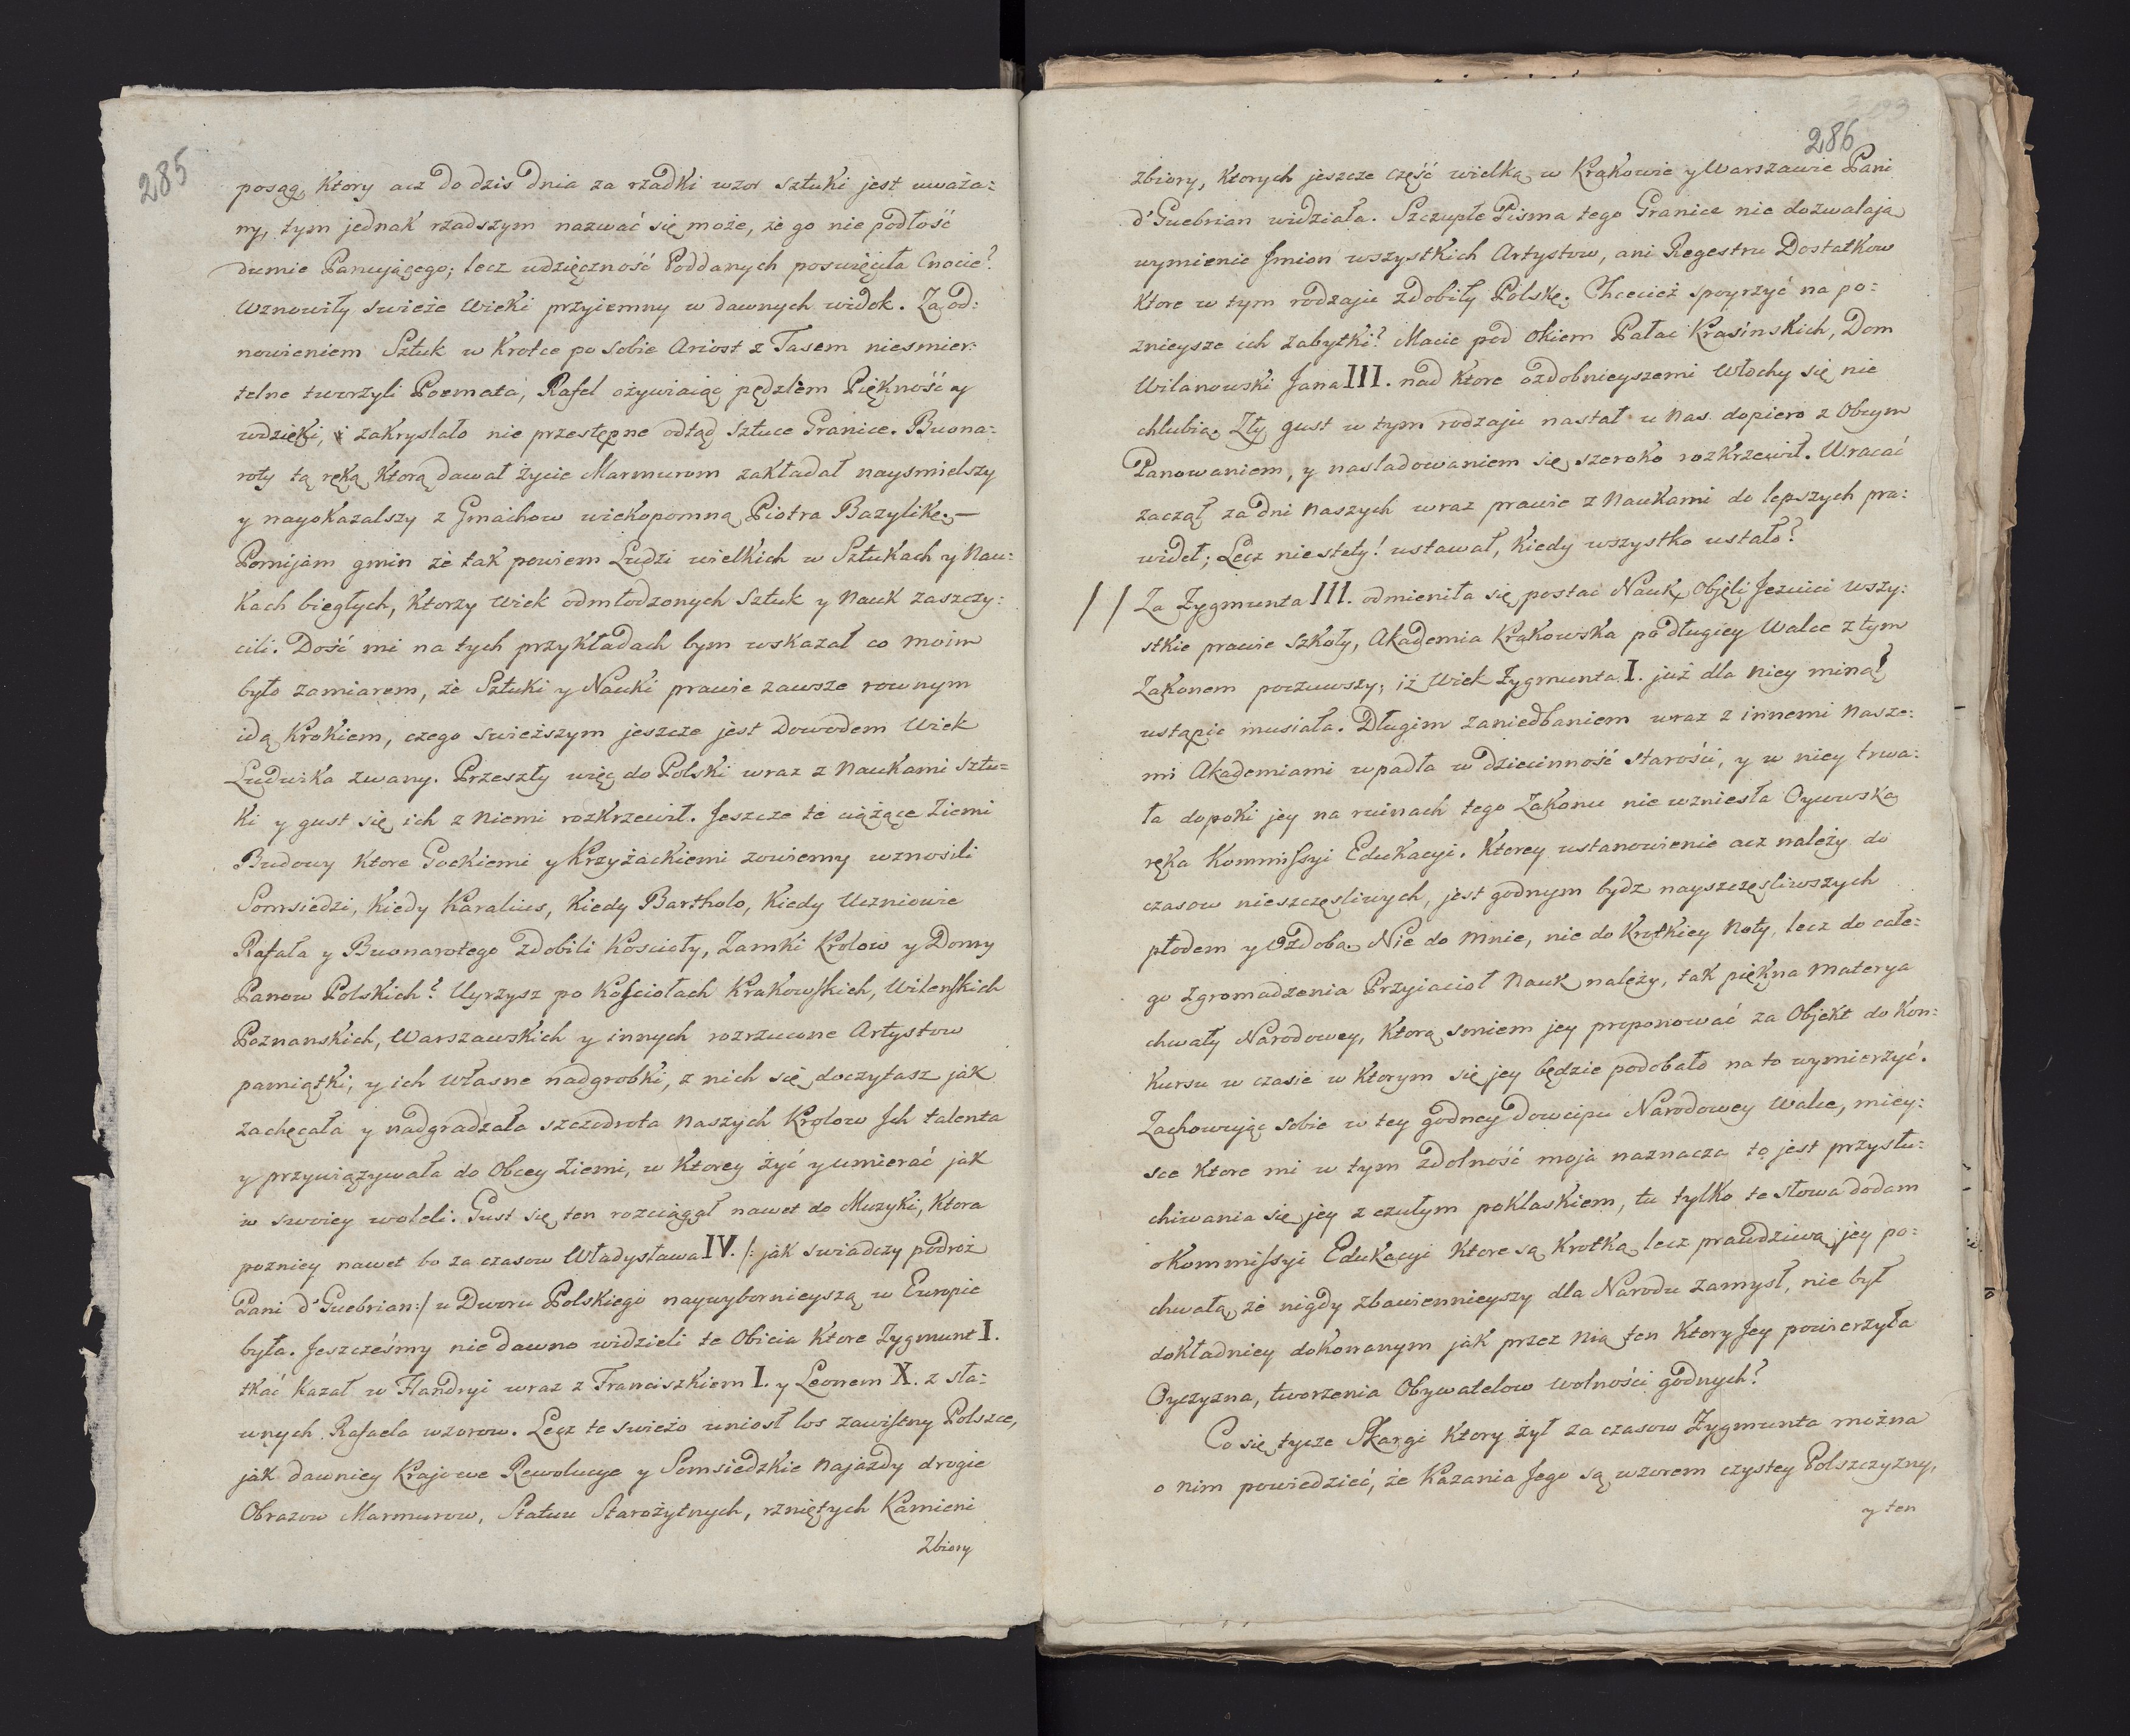 285
posąg, ktory acz do dzis dnia za rzadki wzor sztuki jest uważa:
ny, tym jednak rzadszym nazwać się może, że go nie podłość
dumie Panującego; lecz wdzięczność Poddanych poswięciła Cnocie?
Wznowiły swieże Wieki przyiemny w dawnych widok. Za od:
nowieniem Sztuk w krotce po sobie Ariost z Tasem niesmier:
telne tworzyli Poemata, Rafel ożywiaiąc pędzlem Piękność y
wdzięki, zakryslało nie przestępne odtąd sztuce Granice. Buona:
roty tą ręką ktorą dawał życie Marmurom zakładał naysmielszy
y nayokazalszy z Gmachow wiekopomną Piotra Bazylikę.—
Pomijam gmin że tak powiem Ludzi wielkich w Sztukach y Nau:
kach biegłych, ktorzy Wiek odmłodzonych Sztuk y Nauk zaszczy:
cili. Dość mi na tych przykładach bym wskazał co moim
było zamiarem, że Sztuki y Nauki prawie zawsze rownym
idą krokiem, czego swieższym jeszcze jest Dowodem Wiek
Ludwika zwany. Przeszły więc do Polski wraz z Naukami Sztu=
ki y gust się ich z niemi rozkrzewił. Jeszcze te ciążące Ziemi
Budowy ktore Gockiemi y Krzyżackiemi zowiemy wznosili
Somsiedzi, kiedy Karalius, kiedy Bartholo, kiedy Uczniowie
Rafała y Buonarotego zdobili Koscioły, Zamki Krolow y Domy
Panow Polskich? Uyrzysz po Kosciołach Krakowskich, Wilenskich
Poznanskich, Warszawskich y innych rozrzucone Artystow
pamiątki, y ich własne nadgrobki, z nich się doczytasz jak
zachęcała y nadgradzała szczodrota naszych Krolow Ich talenta
y przywiązywała do Obcey Ziemi, w ktorey żyć y umierać jak
w swoiey woleli. Gust się ten rozciągął nawet do Muzyki, ktora
pozniey nawet bo za czasow Władysława IV. /: jak swiadczy podroż
Pani d'Guebrian :/ u Dworu Polskiego naywybornieyszą w Europie
była. Jeszcześmy nie dawno widzieli te Obicia ktore Zygmunt I.
tkać kazał w Flandryi wraz z Franciszkiem I. y Leonem X. z sła:
wnych Rafaela wzorow. Lecz te swieżo uniosł los zawistny Polszce,
jak dawniey Krajowe Rewolucye y Somsiedzkie najazdy drogie
Obrazow Marmurow, Statuu Starożytnych, rzniętych Kamieni
Zbiory
286
zbiory, ktorych jeszcze część wielką w Krakowie y Warszawie Pani
d'Guebrian widziała. Szczupłe Pisma tego Granice nie dozwalają
wymienic Imion wszystkich Artystow, ani Regestru Dostatkow
ktore w tym rodzaju zdobiły Polskę. Chcecież spoyrzyć na po:
znieysze ich zabytki? Macie pod okiem Pałac Krasinskich, Dom
Wilanowski Jana III. nad ktore ozdobnieyszemi Włochy się nie
chlubią. Zły gust w tym rodzaju nastał u nas dopiero z Obcym
Panowaniem, y nasladowaniem się szeroko rozkrzewił. Wracać
zaczął za dni naszych wraz prawie z Naukami do lepszych pra:
wideł; Lecz niestety! ustawał, kiedy wszystko ustało?
// Za Zygmunta III. odmieniła się postac Nauk, Objęli Jezuici wszy:
stkie prawie szkoły, Akademia Krakowska po długiey Walce z tym
Zakonem poczuwszy; iż Wiek Zygmunta I. już dla niey minął
ustąpic musiała. Długim zaniedbaniem wraz z innemi nasze:
mi Akademiami wpadła w dziecinność starości, y w niey trwa:
ła dopoki jey na ruinach tego Zakonu nie wzniesła Oycowska
ręka Kommissyi Edukacyi. Ktorey ustanowienie acz należy do
czasow nieszczęsliwych, jest godnym bydz nayszczęsliwszych
płodem y Ozdobą. Nie do mnie, nie do krotkiey Noty, lecz do całe:
go zgromadzenia Przyiacioł Nauk należy, tak piękna materya
chwały Narodowey, ktorą smiem jey proponować za Objekt do kon:
kursu w czasie w ktorym się jey będzie podobało na to wymierzyć.
Zachowując sobie w tey godney Dowcipu Narodowey Walce, miey:
sce ktore mi w tym zdolność moja naznacza to jest przysłu:
chiwania się jey z czułym poklaskiem, tu tylko te słowa dodam
o Kommissyi Edukacyi ktore są krotką lecz prawdziwą jey po:
chwałą, że nigdy zbawiennieyszy dla Narodu zamysł, nie był
dokładniey dokonanym jak przez nią ten ktory Jey powierzyła
Oyczyzna, tworzenia Obywatelow wolności godnych?
Co się tycze Skargi ktory żył za czasow Zygmunta można
o nim powiedzieć, że Kazania Jego są wzorem czystey Polszczyzny,
y ten